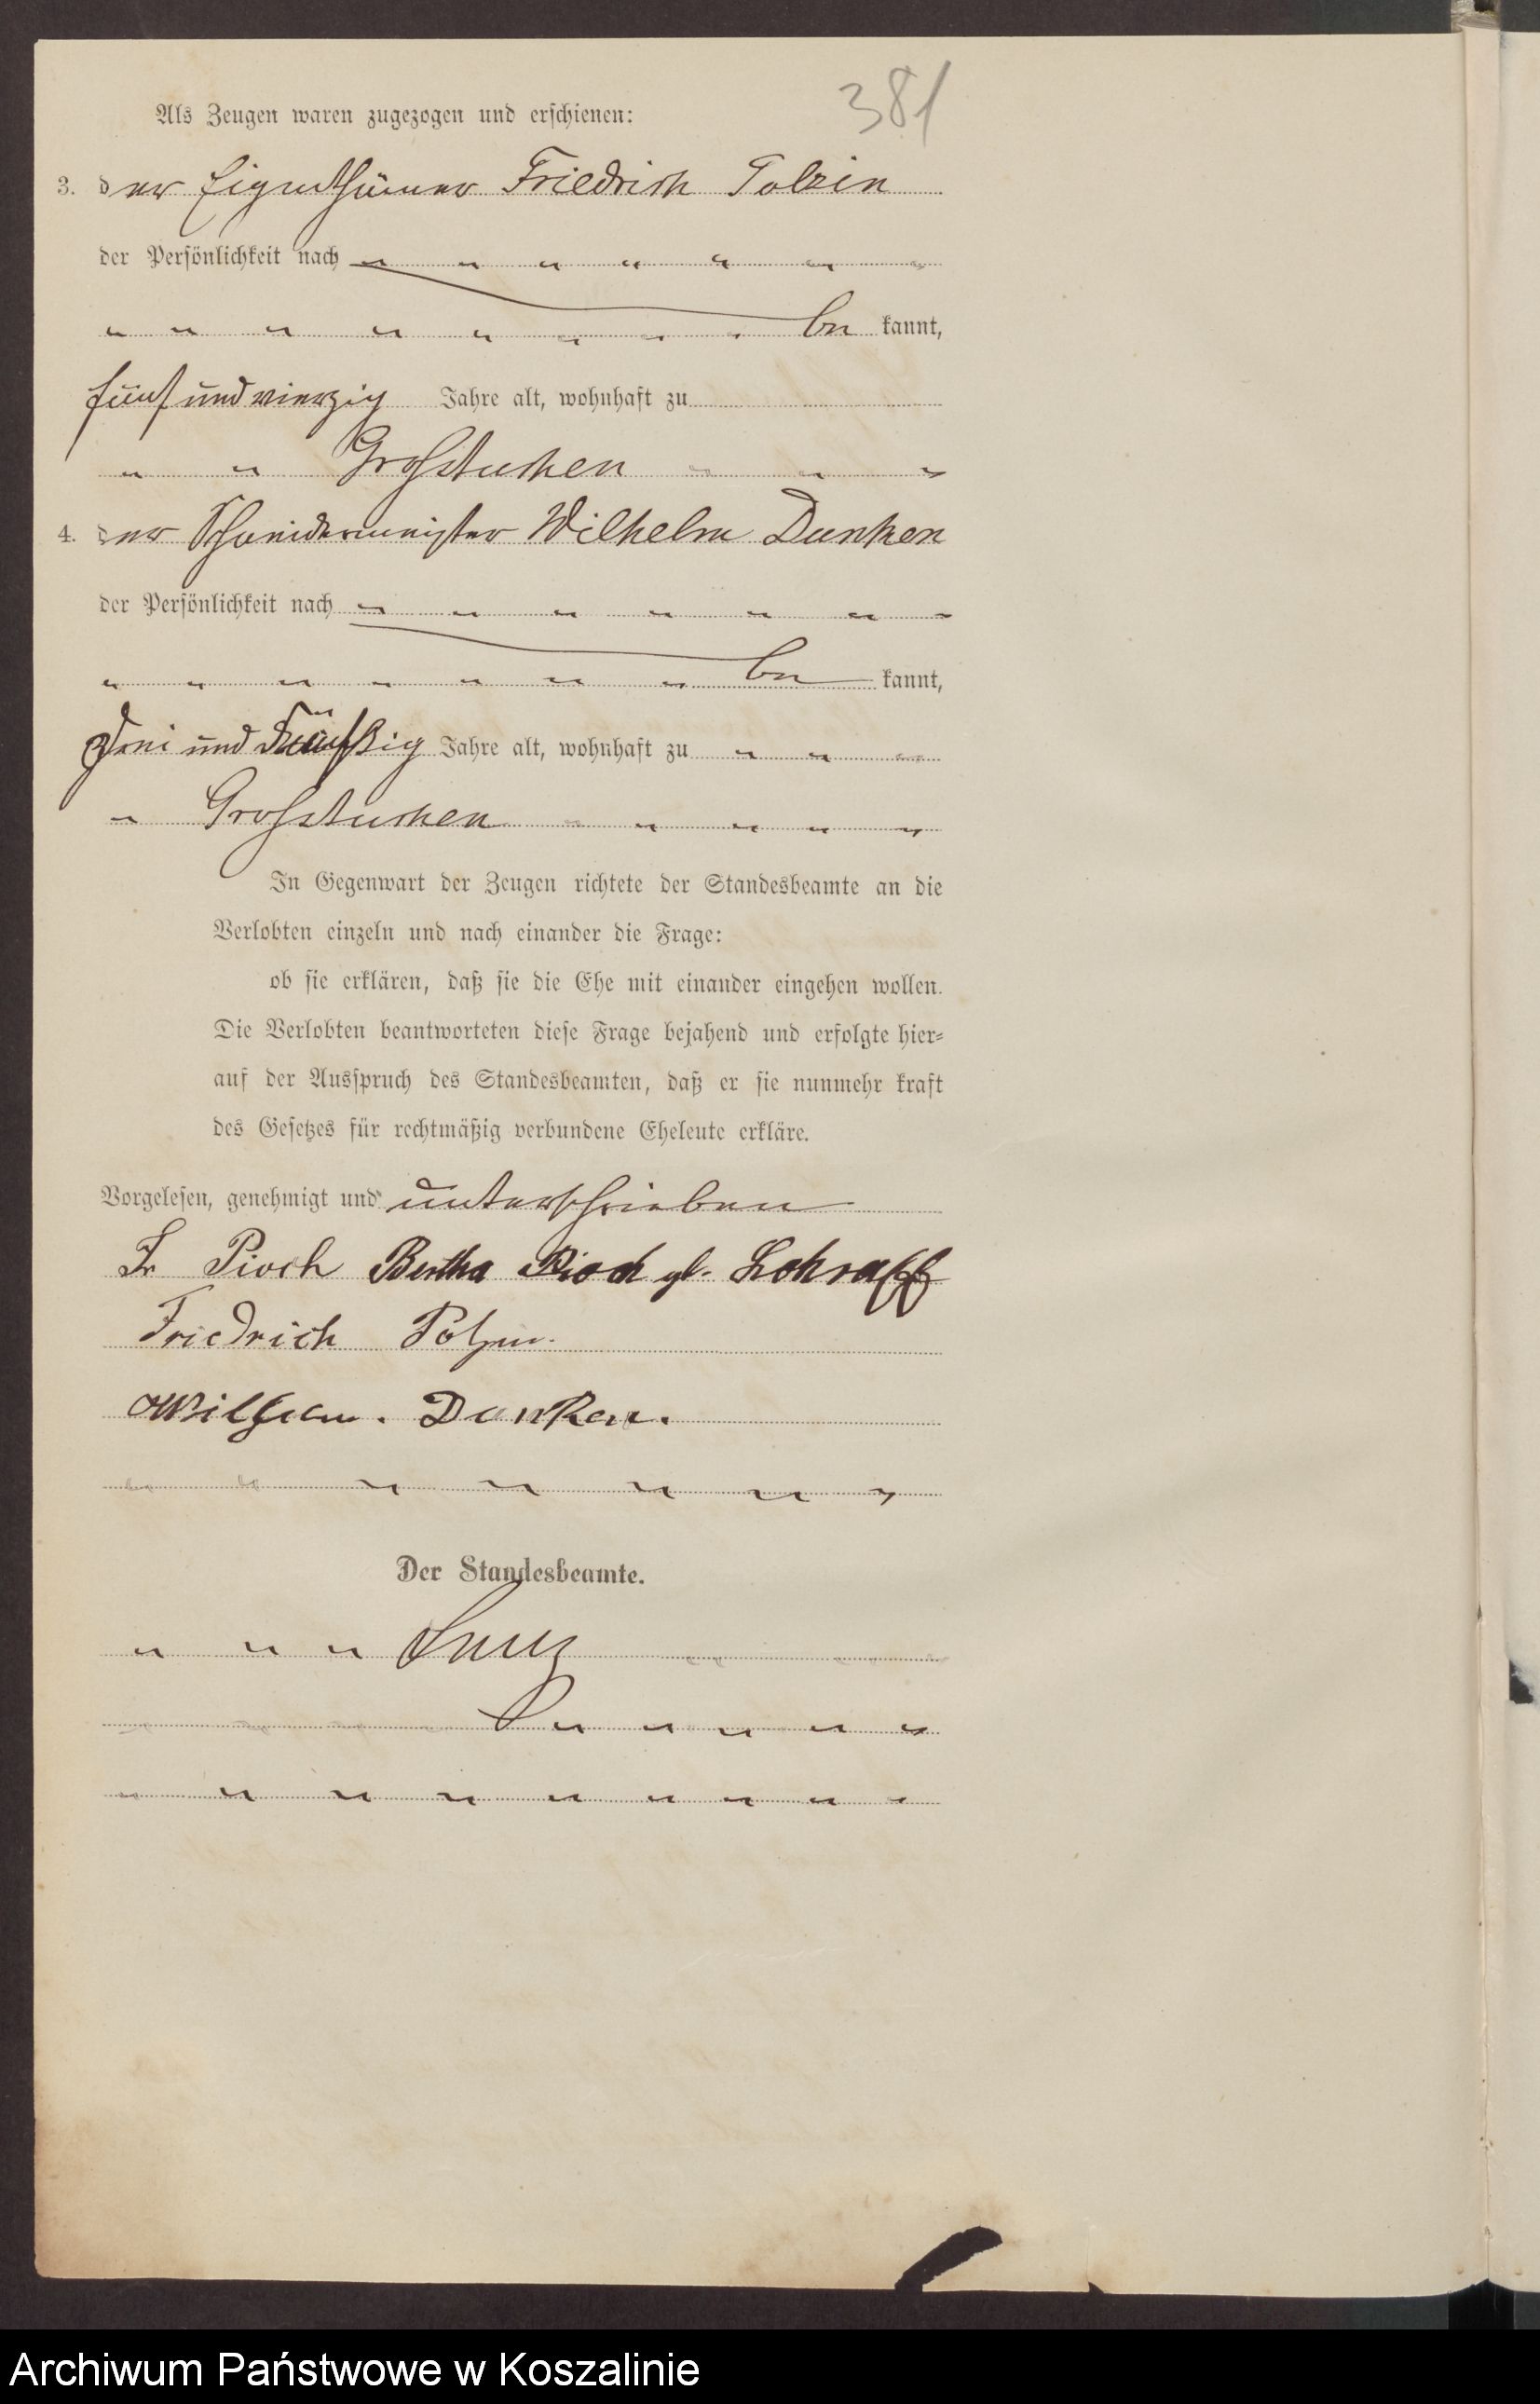 381
Als Zeugen waren zugezogen und erschienen:
3. der Eigenthümer Friedrich Polzin
der Persönlichkeit nach
be kannt,
fünf und vierzig Jahre alt, wohnhaft zu
Großtuchen
4. der Schneidermeister Wilhelm Dunken
der Persönlichkeit nach
be kannt,
und fünfzig Jahre alt, wohnhaft zu
Großtuchen
In Gegenwart der Zeugen richtete der Standesbeamte an die
Verlobten einzeln und nach einander die Frage:
ob sie erklären, daß sie die Ehe mit einander eingehen wollen.
Die Verlobten beantworteten diese Frage bejahend und erfolgte hier=
auf der Ausspruch des Standesbeamten, daß er sie nunmehr kraft
des Gesetzes für rechtmäßig verbundene Eheleute erkläre.
Vorgelesen, genehmigt und unterschrieben
Fr Pioch Bertha Pioch gb. Lohraff
Friedrich Polzin.
Wilhelm. Dunken.
Der Standesbeamte.
Archiwum Państwowe w Koszalinie